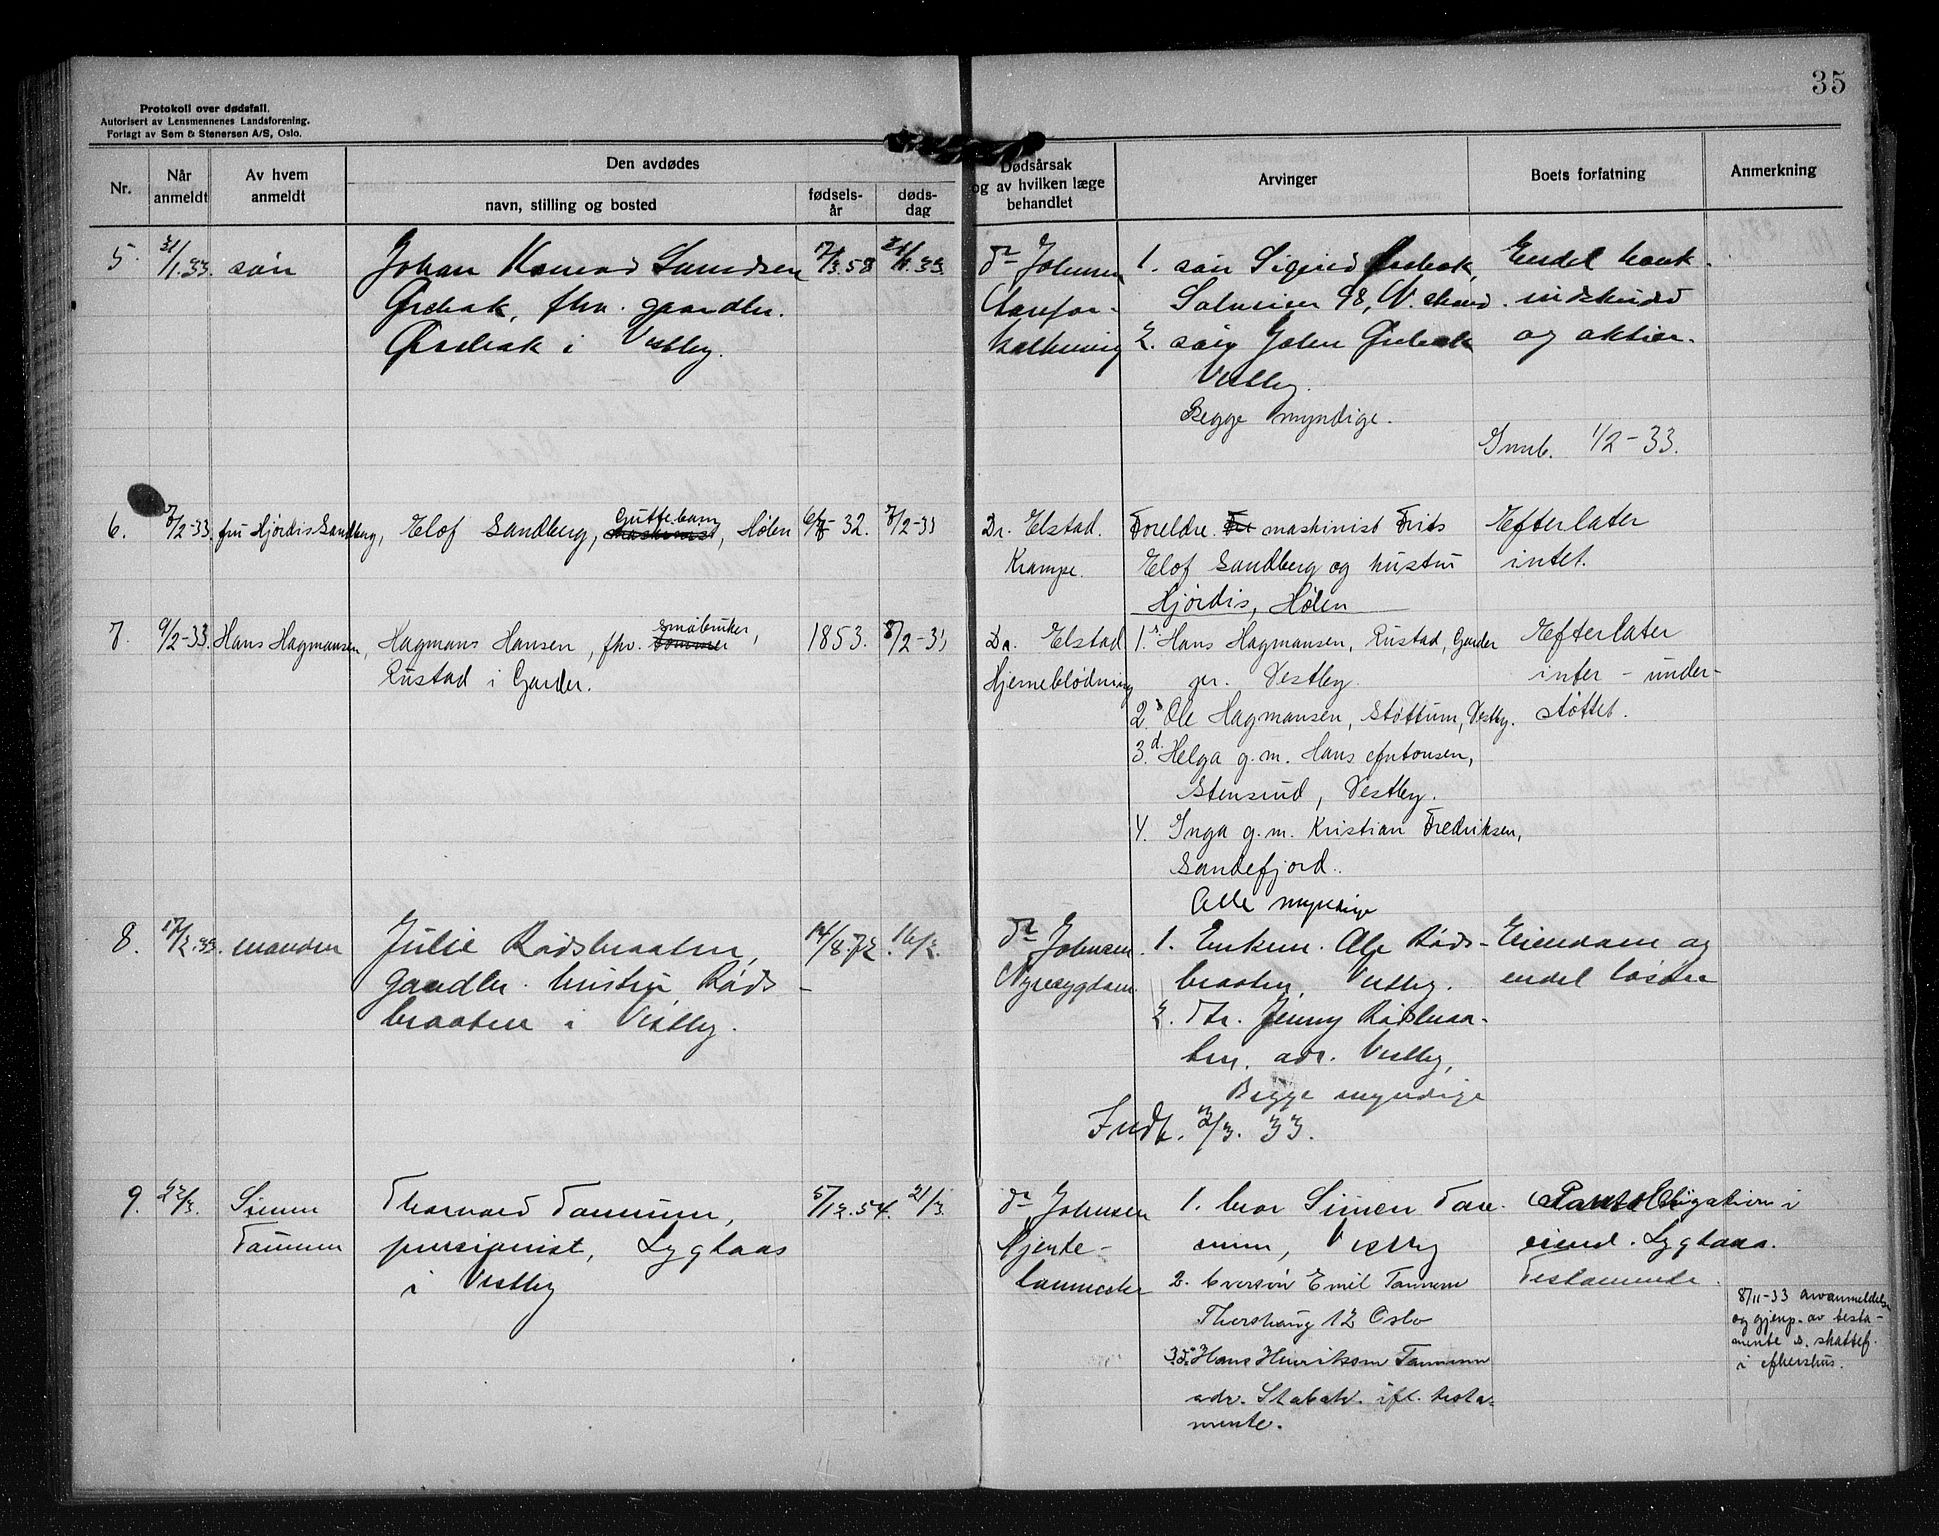 35
Protokoll over dødsfall.
Autorisert av Lensmennenes Landsforening.
Forlagt av Sem & Stenersen A/S, Oslo.
Nr.
Når anmeldt
Av hvem anmeldt
Den avdødes
navn, stilling og bosted
fødsels-år
døds-dag
Dødsårsak og av hvilken læge behandlet
Arvinger
Boets forfatning
Anmerkning
5. 31/1.33. søn
Johan Konrad
Ørebak, fhv. gaardbr.
Ørebak i Vestby.
17/3.58
33
dr Johnsen
Aarefor-
kalkning
1. søn Sigurd Ørebak,
Solveien 98, N. strand.
2. søn Ørebak
Vestby.
Begge myndige.
Endel bank-
indskudd
og aktier.
Innb. 1/2-33.
6. 7/2-33. fru Hjørdis Sandberg,
Elof Sandberg, Guttebarn, Hølen
32.
7/2-33
Dr. Elstad.
Krampe.
Foreldre. maskinist Frits
Elof Sandberg og hustru
Hjørdis, Hølen
Efterlater
intet.
7. 9/2-33. Hans Hagmansen,
Hagmans Hansen, fhv. småbruker,
Rustad i Garder.
1853.
8/2-33
Dr. Elstad
Hjerneblødning
1. s Hans Hagmansen, Rustad, Garder
pr. Vestby.
2. s Ole Hagmansen, Støttum, Vestby.
3. d. Helga g.m. Hans Antonsen,
Stensrud, Vestby.
4. Inga g.m. Kristian Fredriksen,
Sandefjord.
Alle myndige
Efterlater
intet - under-
støttet.
8. 17/2.33. manden
Julie Rødsbraaten,
gaardbr. hustru Røds-
braaten i Vestby.
14/8.72.
16/2.
dr Johnsen
Nyresygdom
1. Enkem. Alf Røds-
braaten, Vestby.
2. dtr. Jenny Rødsbraa-
ten, adr. Vestby,
Begge myndige
Eiendom og
endel løsøre
Indb. 2/3. 33.
9. 22/3. Simen
Tannum
Thorvard Tannum,
pensjonist, Lygtaas
i Vestby
5/12.54.
21/3.
dr Johnsen
Hjerte-
lammelse
1. bror Simen Tan-
num, Vestby
2. brorsøn Emil Tannum
12 Oslo
3. Hans Henriksen Tannum
adr. Stabæk. ifl. testa-
mente.
Pantobligation i
eiend. Lygtaas.
Testamente.
8/11-33 arvanmeldelse
og gjenp. av testa-
mente s. skattef.
i Akershus.